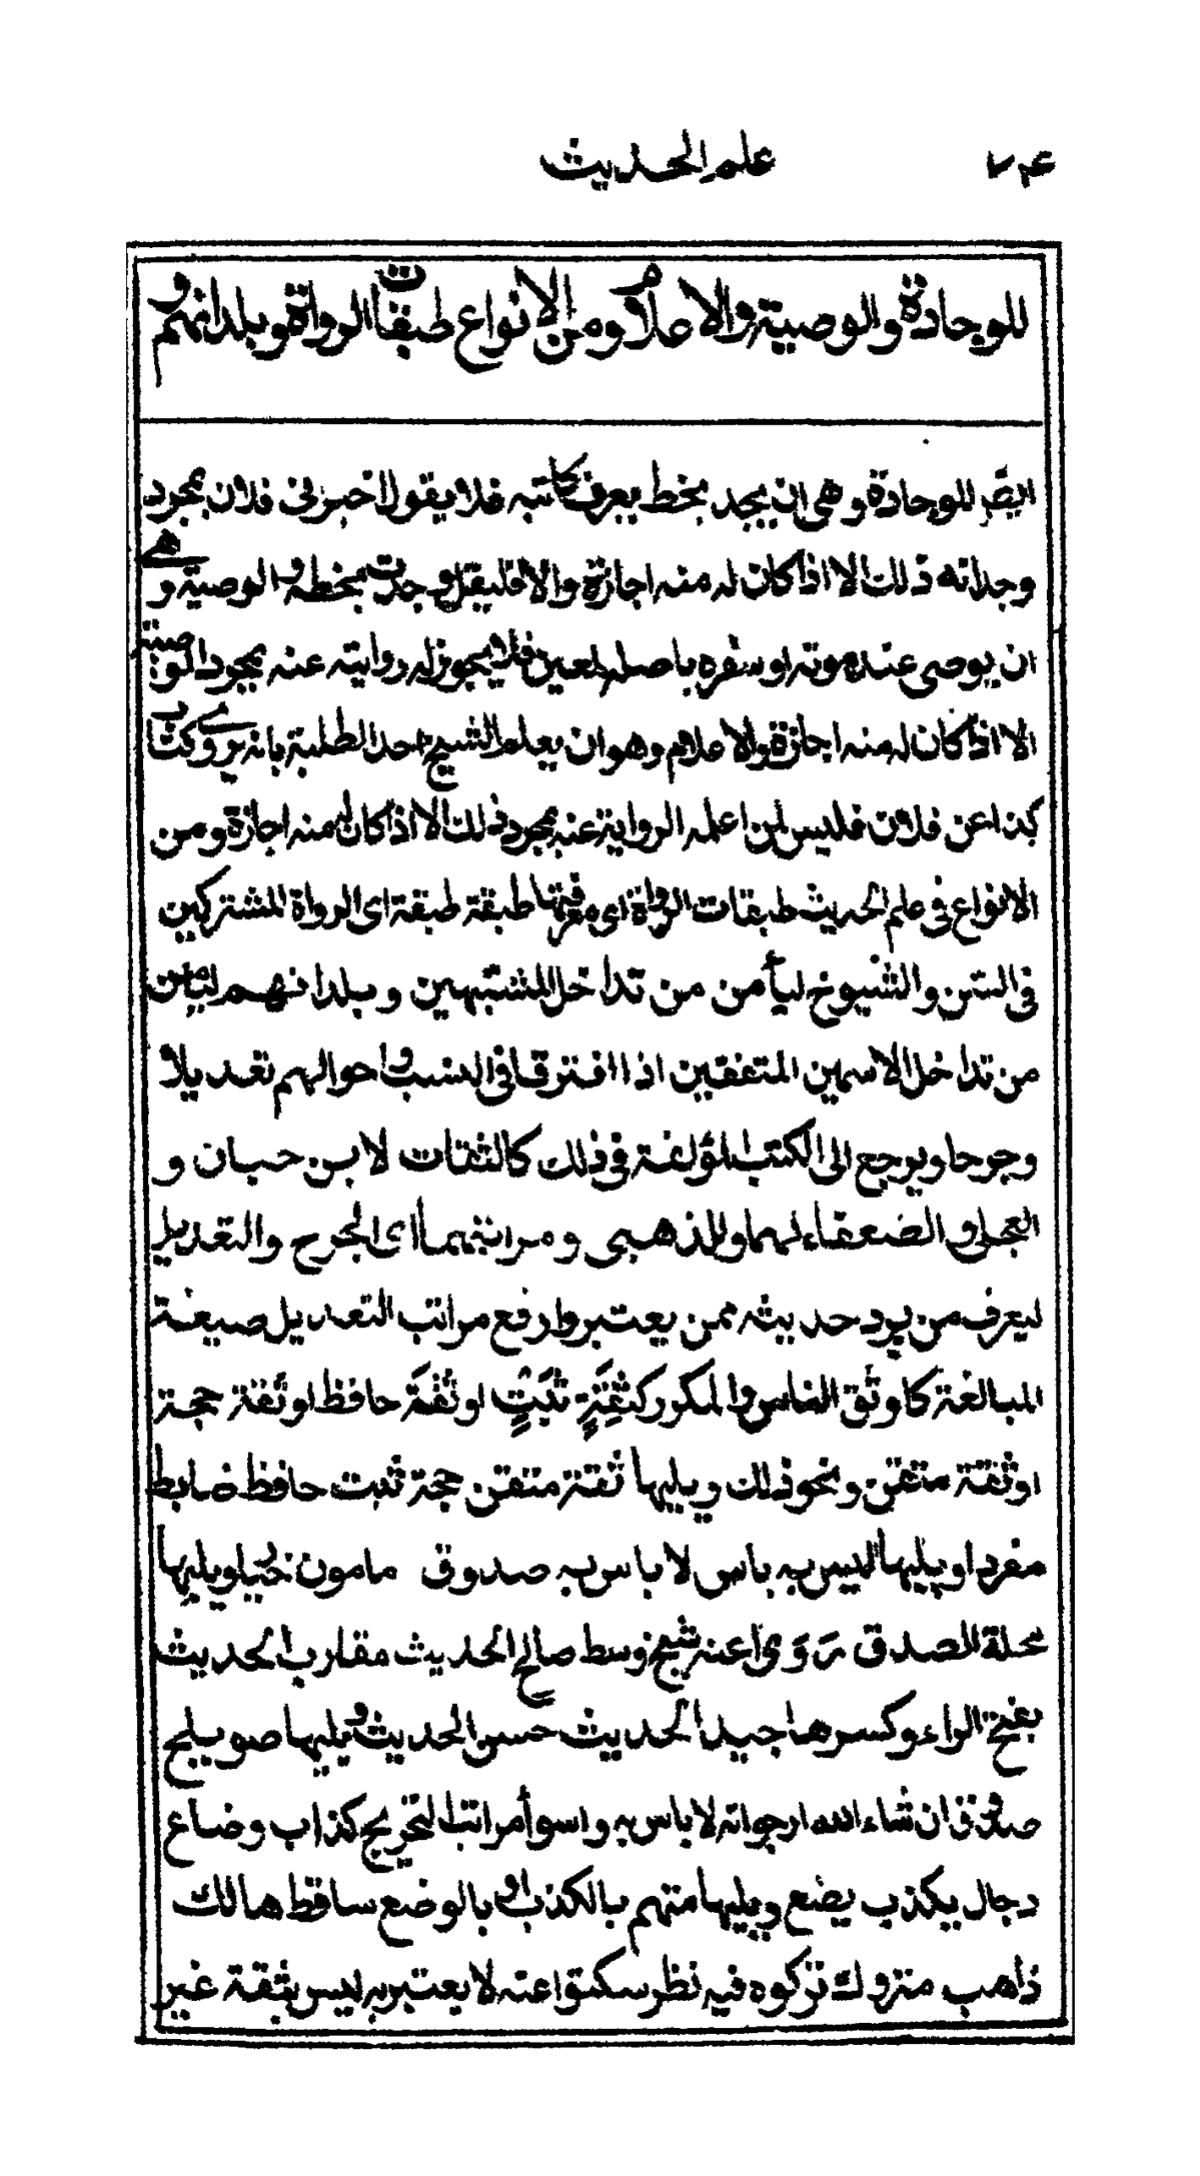 علم الحديث ٧٤
للوجادة والوصية والاعلام ومن الانواع طبقات الرواة وبلدانهم و
ايضا للوجادة وهى ان يجد بخط يعرف كاتبه فلا يقول اخبرنى فلان بمجرد
وجدانه ذلك الا اذا كان له منه اجازة والا فليقل وجدت بخطه والوصية وهى
ان يوصى عند موته او سفره باصله لمعين فلا يجوز له روايته عنه بمجرد الوصية
الا اذا كان له منه اجازة والاعلام وهو ان يعلم الشيخ احد الطلبة بانه يروى كتاب
كذا عن فلان فليس لمن اعلمه الرواية عنه بمجرد ذلك الا اذا كان له منه اجازة ومن
الانواع فى علم الحديث طبقات الرواة اى معرفتها طبقة طبقة اى الرواة المشتركين
فى السن والشيوخ ليأمن من تداخل المشتبهين وبلدانهم ليأمن
من تداخل الاسمين المتفقين اذا افترقا فى النسب واحوالهم تعديلا
وجرحا ويرجع الى الكتب المؤلفة فى ذلك كالثقات لابن حبان و
العجلى والضعفاء لهما وللذهبى ومراتبهما اى الجرح والتعديل
ليعرف من يرد حديثه ممن يعتبر وارفع مراتب التعديل صيغة
المبالغة كاوثق الناس والمكرر كثِقَةٍ ثَبَتٍ او ثقة حافظ او ثقة حجة
او ثقة متقن ونحو ذلك ويليها ثقة متقن حجة ثبت حافظ ضابط
مفردا ويليها ليس به باس لا باس به صدوق مامون خيار ويليها
محلة الصدق رَوَوى عنه شيخ وسط صالح الحديث مقارب الحديث
بفتح الراء وكسرها جيد الحديث حسن الحديث ويليها صويلح
صدوق ان شاء الله ارجو انه لا باس به واسوأ مراتب التجريح كذاب وضاع
دجال يكذب يضع ويليها متهم بالكذب او بالوضع ساقط هالك
ذاهب متروك تركوه فيه نظر سكتوا عنه لا يعتبر به ليس بثقة غير